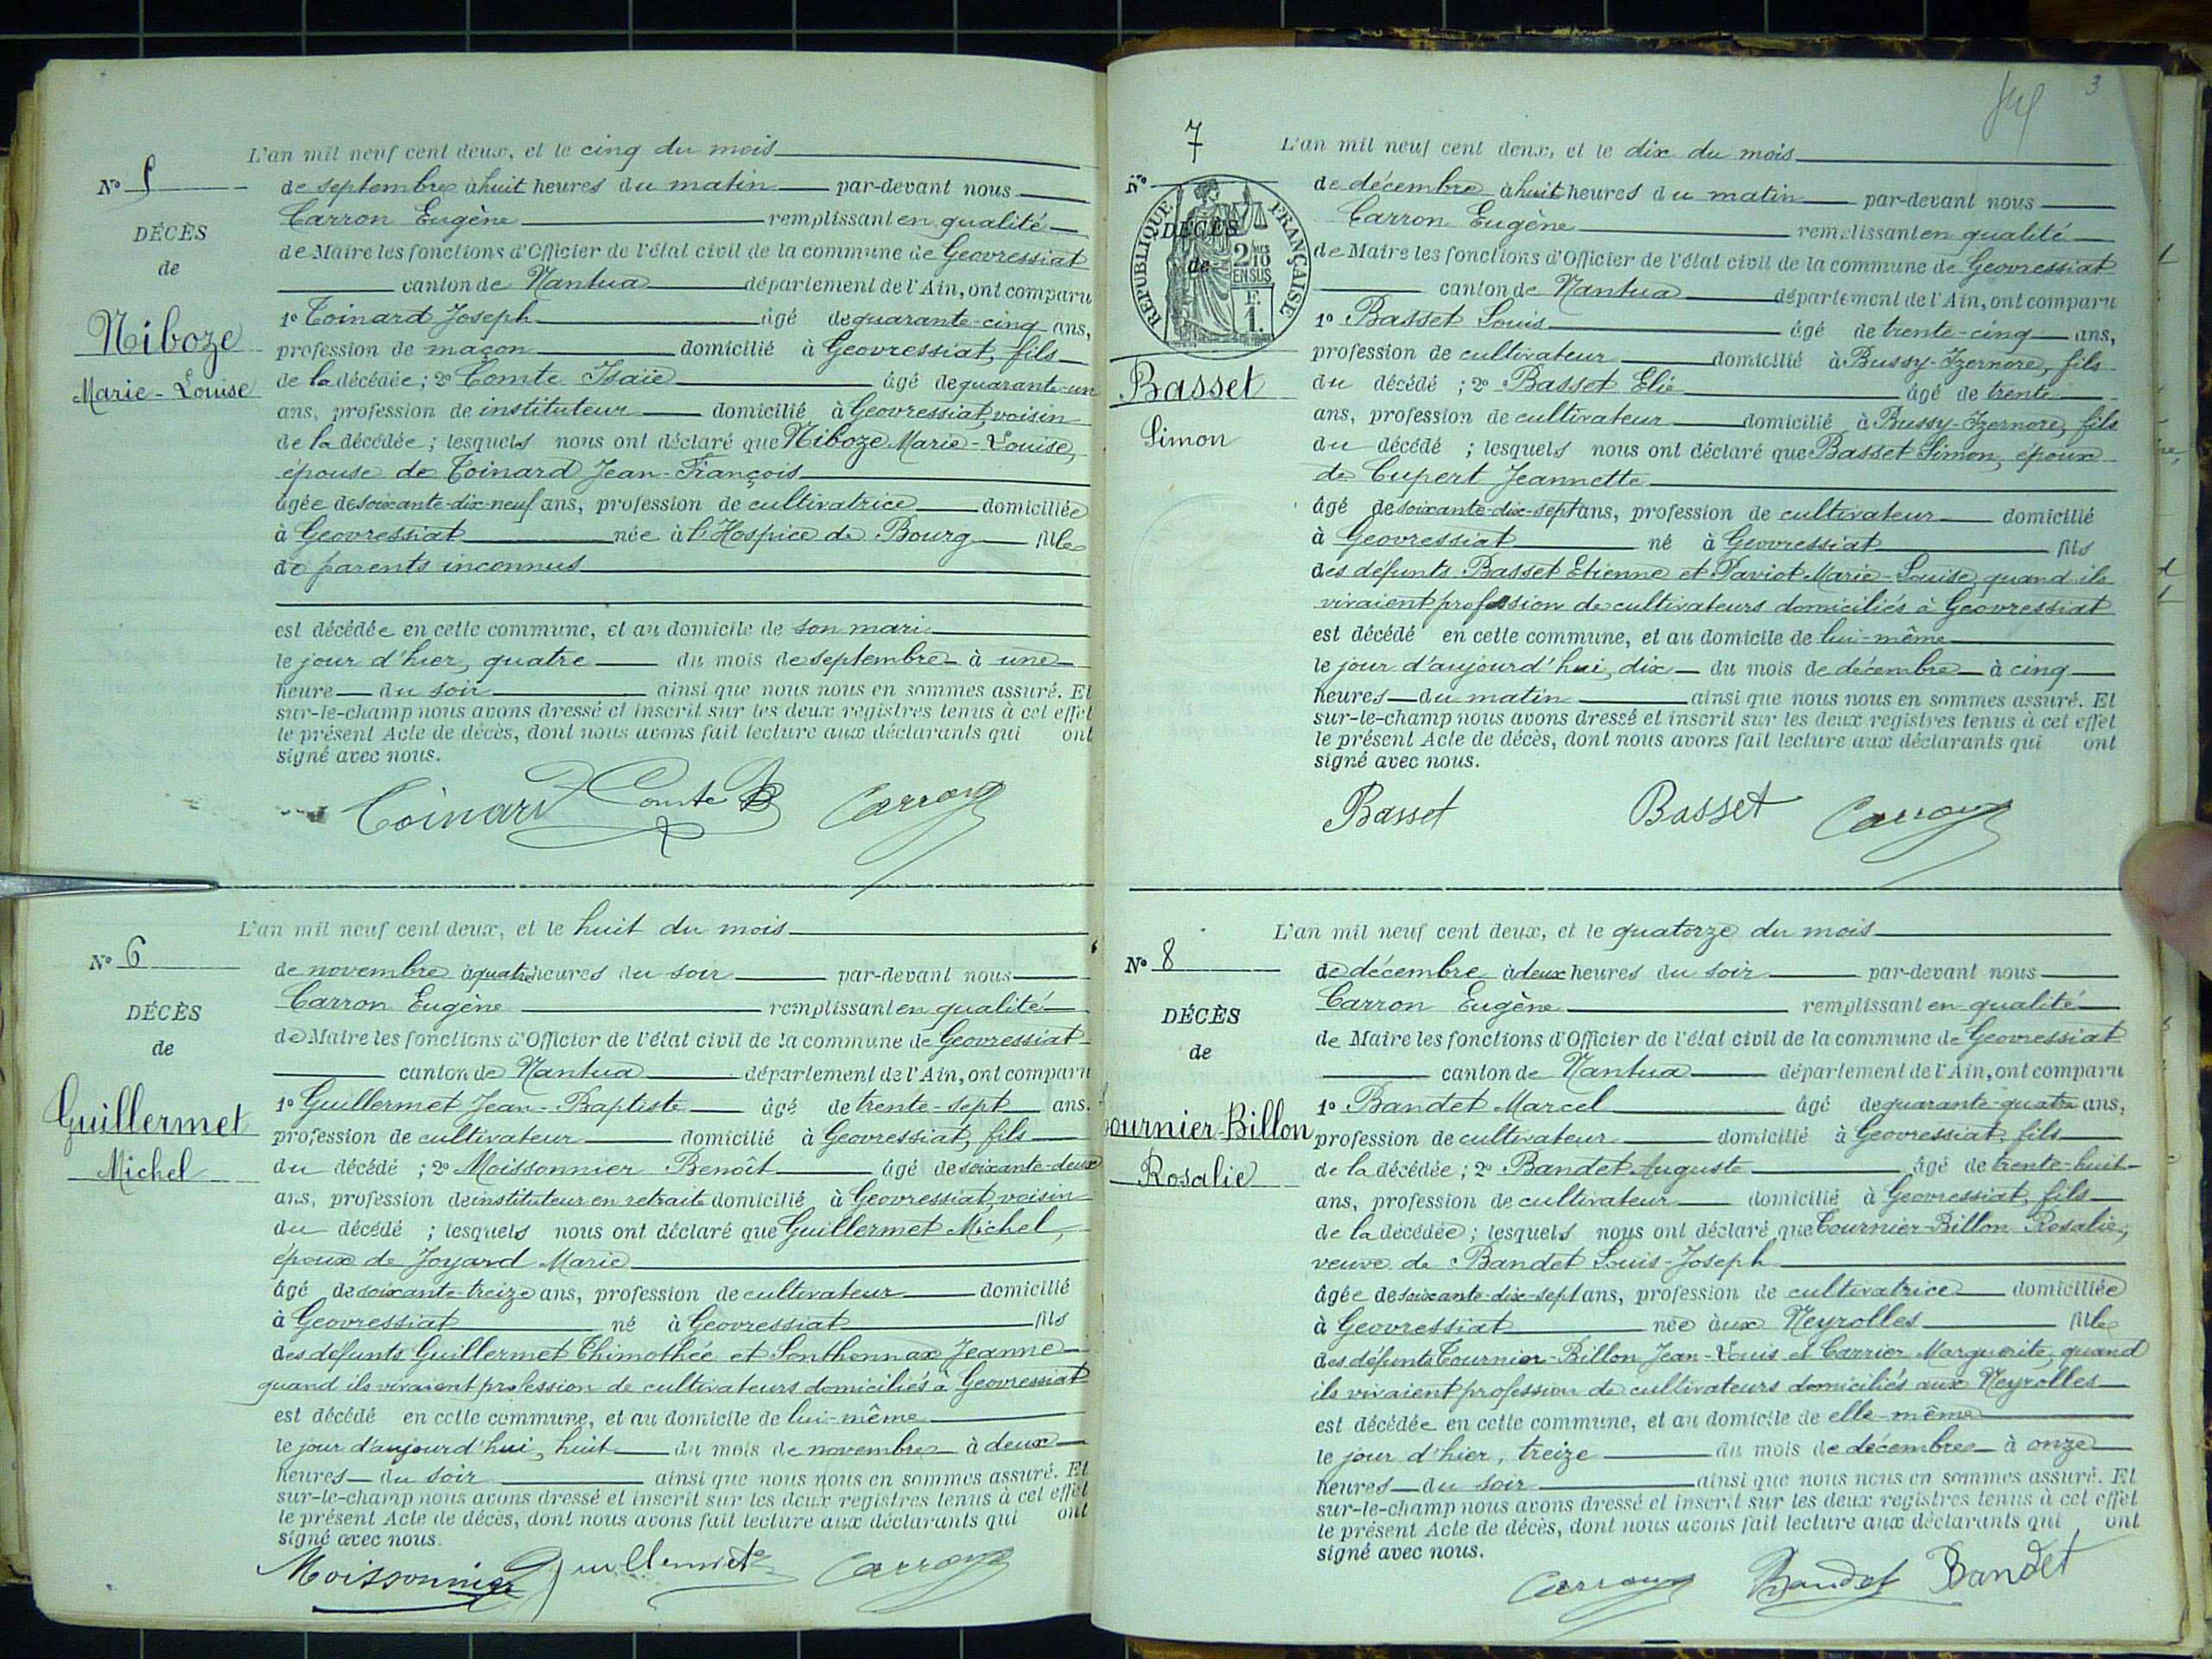 L'an mil neuf cent deux, et le cinq du mois
N° 5
de septembre à huit heures du matin par-devant nous
DÉCÈS
Carron Eugène remplissant en qualité
de
de Maire les fonctions d'Officier de l'état civil de la commune de Geovressiat
canton de Nantua département de l'Ain, ont comparu
Niboze
Marie-Louise
1° Toinard Joseph âgé de quarante-cinq ans,
profession de maçon domicilié à Geovressiat, fils
de la décédée; 2° Comte Isaïe âgé de quarante-un
ans, profession de instituteur domicilié à Geovressiat, voisin
de la décédée; lesquels nous ont déclaré que Niboze Marie-Louise,
épouse de Toinard Jean-François
âgée de soixante-dix-neuf ans, profession de cultivatrice domiciliée
à Geovressiat née à l'Hospice de Bourg fille
de parents inconnus
est décédée en cette commune, et au domicile de son mari
le jour d'hier, quatre du mois de septembre à une
heure du soir ainsi que nous nous en sommes assuré. Et
sur-le-champ nous avons dressé et inscrit sur les deux registres tenus à cet effet
le présent Acte de décès, dont nous avons fait lecture aux déclarants qui ont
signé avec nous.
Toinard Comte Carron
L'an mil neuf cent deux, et le huit du mois
N° 6
de novembre à quatre heures du soir par-devant nous
DÉCÈS
Carron Eugène remplissant en qualité
de
de Maire les fonctions d'Officier de l'état civil de la commune de Geovressiat
canton de Nantua département de l'Ain, ont comparu
Guillermet
Michel
1° Guillermet Jean-Baptiste âgé de trente-sept ans.
profession de cultivateur domicilié à Geovressiat, fils
du décédé; 2° Moissonnier Benoît âgé de soixante-deux
ans, profession de instituteur en retraite domicilié à Geovressiat, voisin
du décédé; lesquels nous ont déclaré que Guillermet Michel,
époux de Joyard Marie
âgé de soixante-treize ans, profession de cultivateur domicilié
à Geovressiat né à Geovressiat fils
des défunts Guillermet Thimothée et Sonthonnax Jeanne
quand ils vivaient profession de cultivateurs domiciliés à Geovressiat
est décédé en cette commune, et au domicile de lui-même
le jour d'aujourd'hui, huit du mois de novembre à deux
heures du soir ainsi que nous nous en sommes assuré. Et
sur-le-champ nous avons dressé et inscrit sur les deux registres tenus à cet effet
le présent Acte de décès, dont nous avons fait lecture aux déclarants qui ont
signé avec nous.
Moissonnier Guillermet Carron
3
7
L'an mil neuf cent deux, et le dix du mois
N°
de décembre à huit heures du matin par-devant nous
DÉCÈS
de
RÉPUBLIQUE FRANÇAISE
2/10 EN SUS
F. 1.
Carron Eugène remplissant en qualité
de Maire les fonctions d'Officier de l'état civil de la commune de Geovressiat
canton de Nantua département de l'Ain, ont comparu
Basset
Simon
1° Basset Louis âgé de trente-cinq ans,
profession de cultivateur domicilié à Bussy-Izernore, fils
du décédé; 2° Basset Elie âgé de trente
ans, profession de cultivateur domicilié à Bussy-Izernore, fils
du décédé; lesquels nous ont déclaré que Basset Simon, époux
de Cupert Jeannette
âgé de soixante-dix-sept ans, profession de cultivateur domicilié
à Geovressiat né à Geovressiat fils
des défunts Basset Etienne et Paviot Marie-Louise, quand ils
vivaient profession de cultivateurs domiciliés à Geovressiat
est décédé en cette commune, et au domicile de lui-même
le jour d'aujourd'hui, dix du mois de décembre à cinq
heures du matin ainsi que nous nous en sommes assuré. Et
sur-le-champ nous avons dressé et inscrit sur les deux registres tenus à cet effet
le présent Acte de décès, dont nous avons fait lecture aux déclarants qui ont
signé avec nous.
Basset Basset Carron
L'an mil neuf cent deux, et le quatorze du mois
N° 8
de décembre à deux heures du soir par-devant nous
DÉCÈS
Carron Eugène remplissant en qualité
de
de Maire les fonctions d'Officier de l'état civil de la commune de Geovressiat
canton de Nantua département de l'Ain, ont comparu
ournier-Billon
Rosalie
1° Bandet Marcel âgé de quarante-quatre ans,
profession de cultivateur domicilié à Geovressiat, fils
de la décédée; 2° Bandet Auguste âgé de trente-huit
ans, profession de cultivateur domicilié à Geovressiat, fils
de la décédée; lesquels nous ont déclaré que Tournier-Billon Rosalie,
veuve de Bandet Louis-Joseph
âgée de soixante-dix-sept ans, profession de cultivatrice domiciliée
à Geovressiat née aux Neyrolles fille
des défunts Tournier-Billon Jean-Louis et Carrier Marguerite, quand
ils vivaient profession de cultivateurs domiciliés aux Neyrolles
est décédée en cette commune, et au domicile de elle-même
le jour d'hier, treize du mois de décembre à onze
heures du soir ainsi que nous nous en sommes assuré. Et
sur-le-champ nous avons dressé et inscrit sur les deux registres tenus à cet effet
le présent Acte de décès, dont nous avons fait lecture aux déclarants qui ont
signé avec nous.
Carron Bandet Bandet